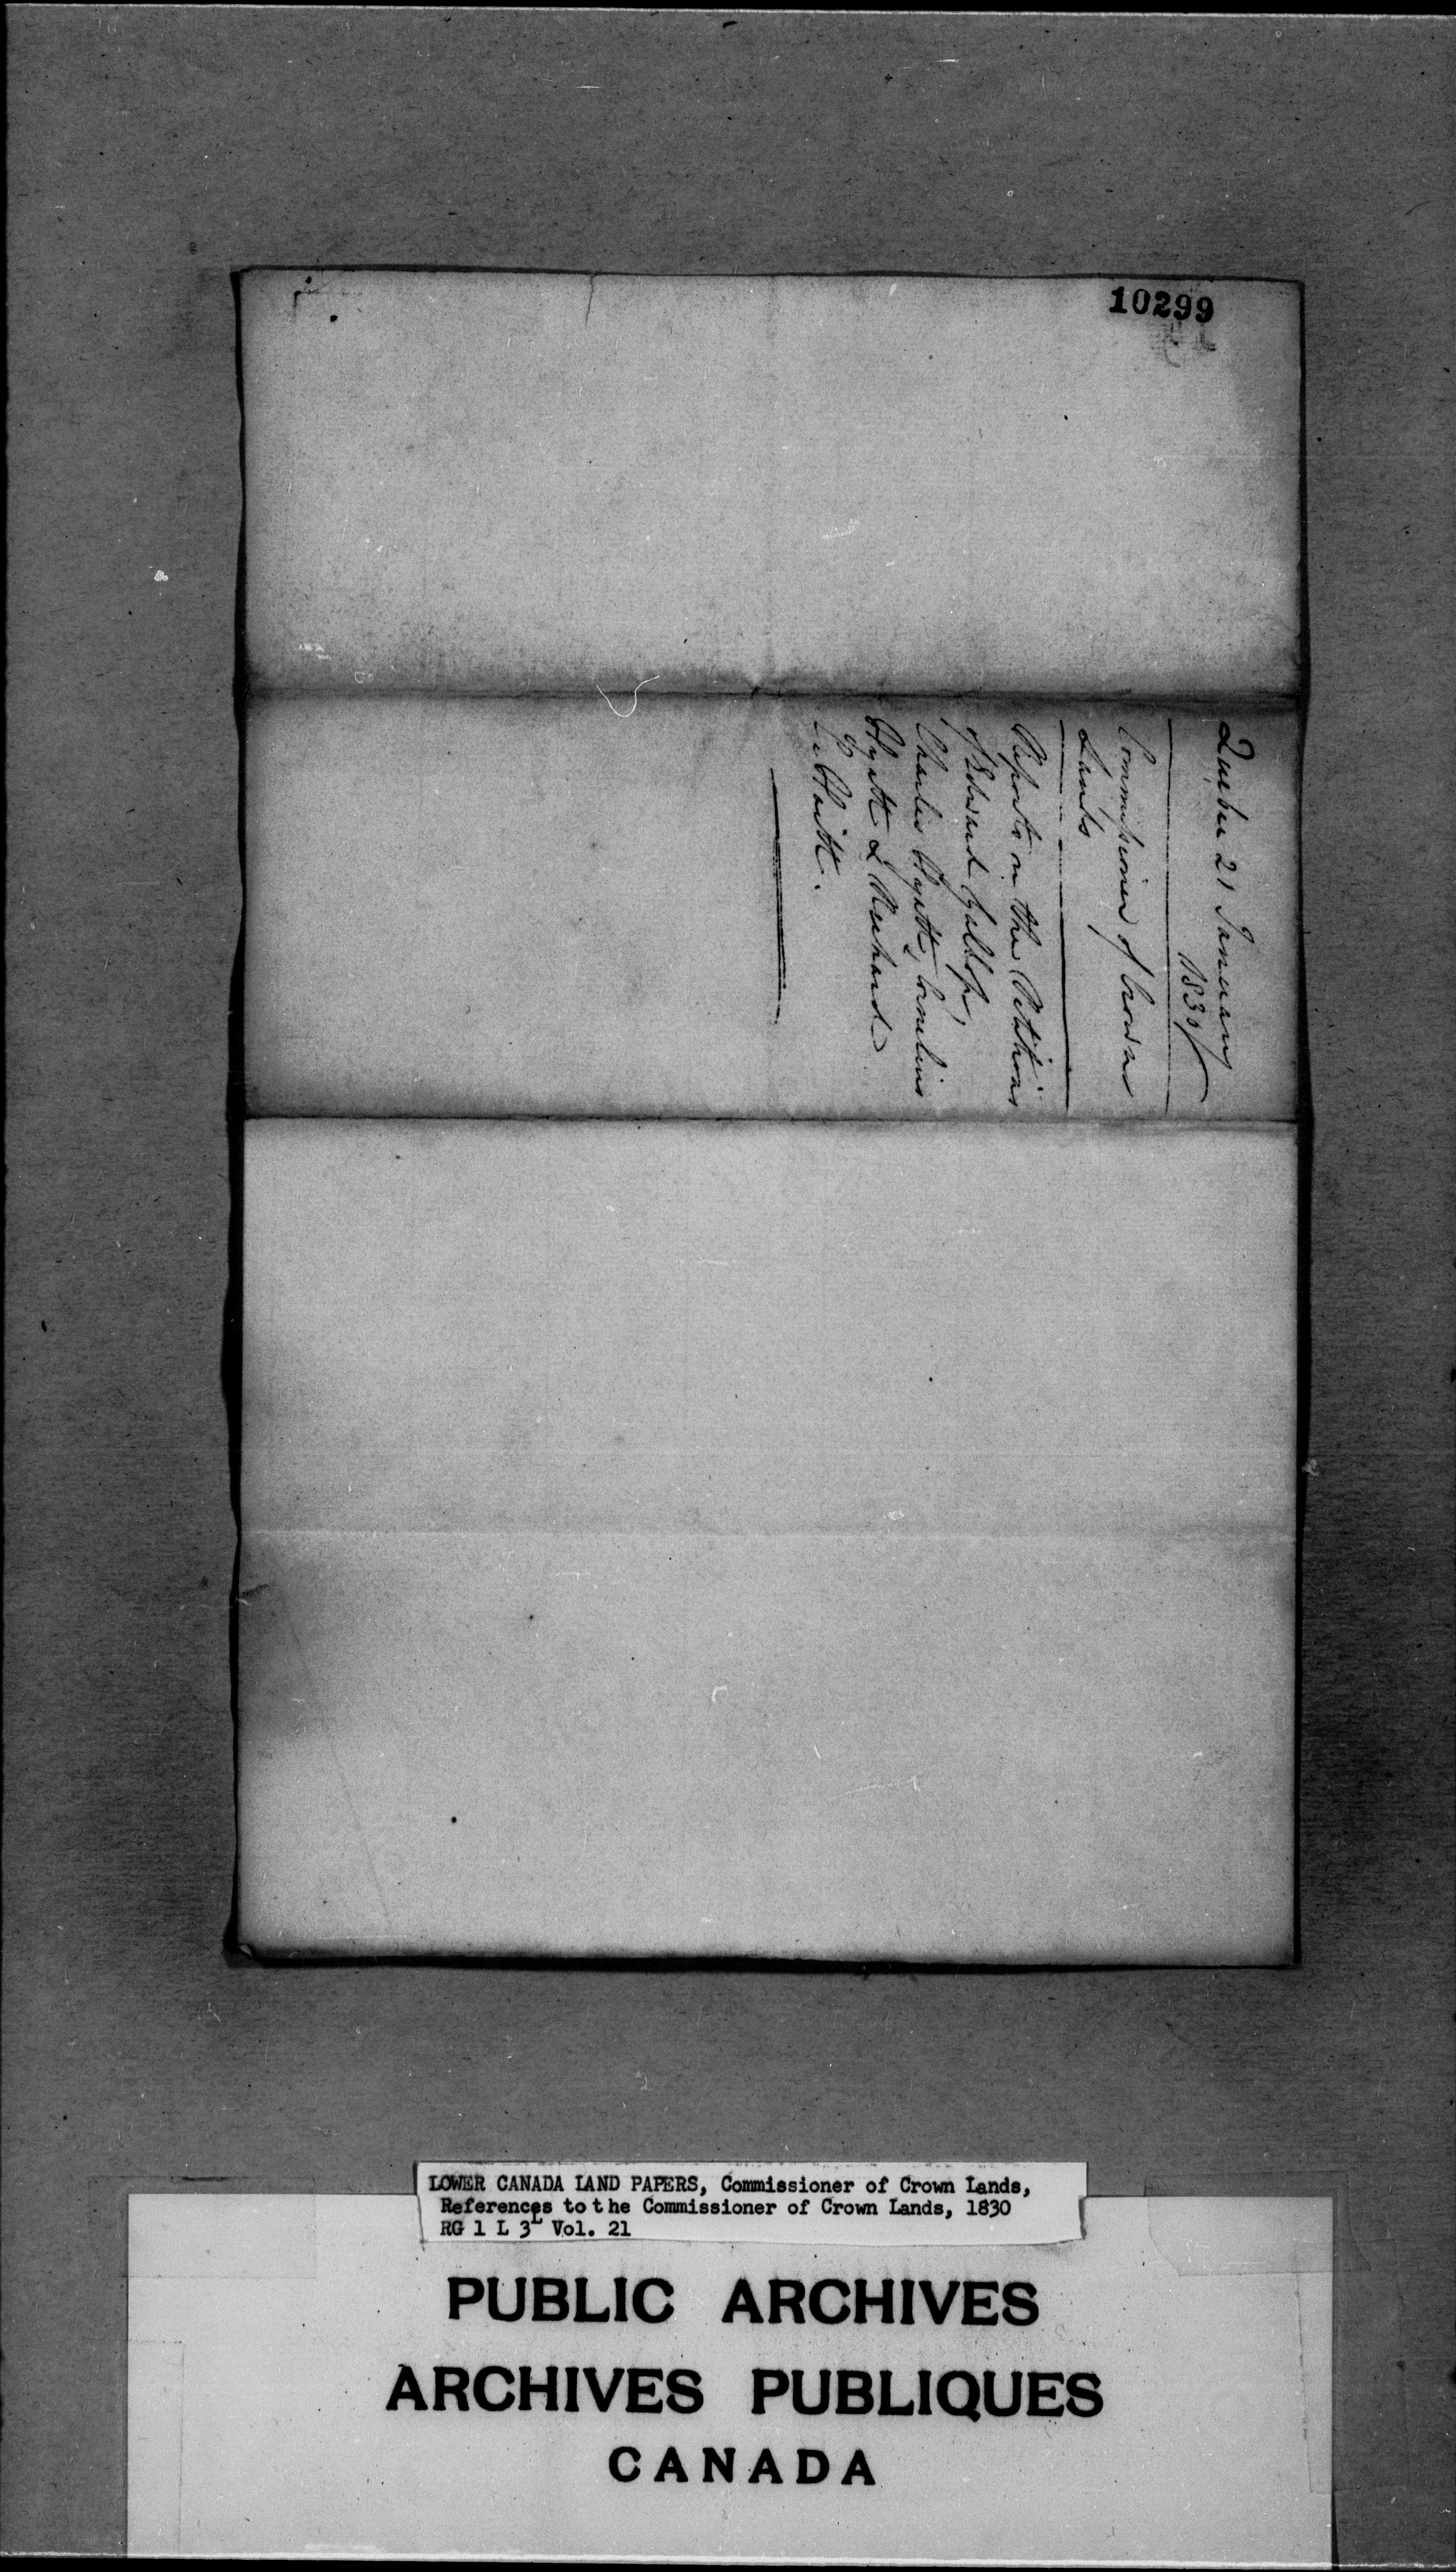 10299
Quebec 21 January
1830
Commissioner of Crown
Lands
Reports on the Petitions
of Edward Gallop,
Charles Hyatt, Cornelius
Hyatt &
LOWER CANADA LAND PAPERS, Commissioner of Crown Lands,
References to the Commissioner of Crown Lands, 1830
RG 1 L 3L Vol. 21
PUBLIC ARCHIVES
ARCHIVES PUBLIQUES
CANADA